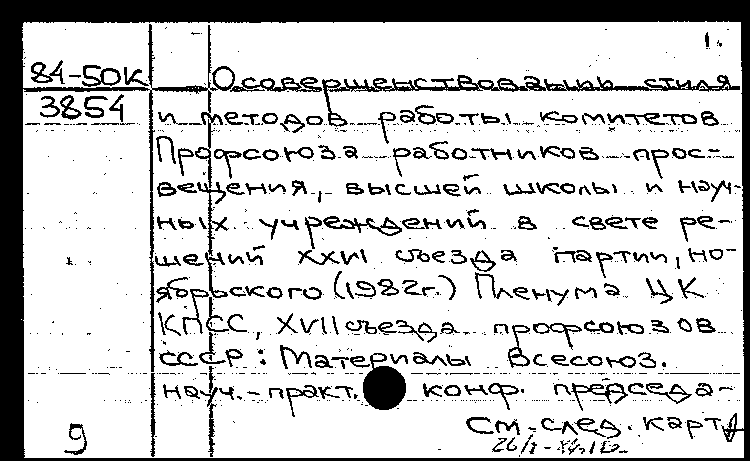 1.
84-50К О совершенствовании стиля
3854 и методов работы комитетов
Профсоюза работников прос-
вещения, высшей школы и науч-
ных учреждений в свете ре-
шений XXVI съезда партии, но-
ябрьского (1982г.) Пленума ЦК
КПСС, XVII съезда профсоюзов
СССР: Материалы Всесоюз.
науч.-практ. конф. председа-
См. след. карт
9